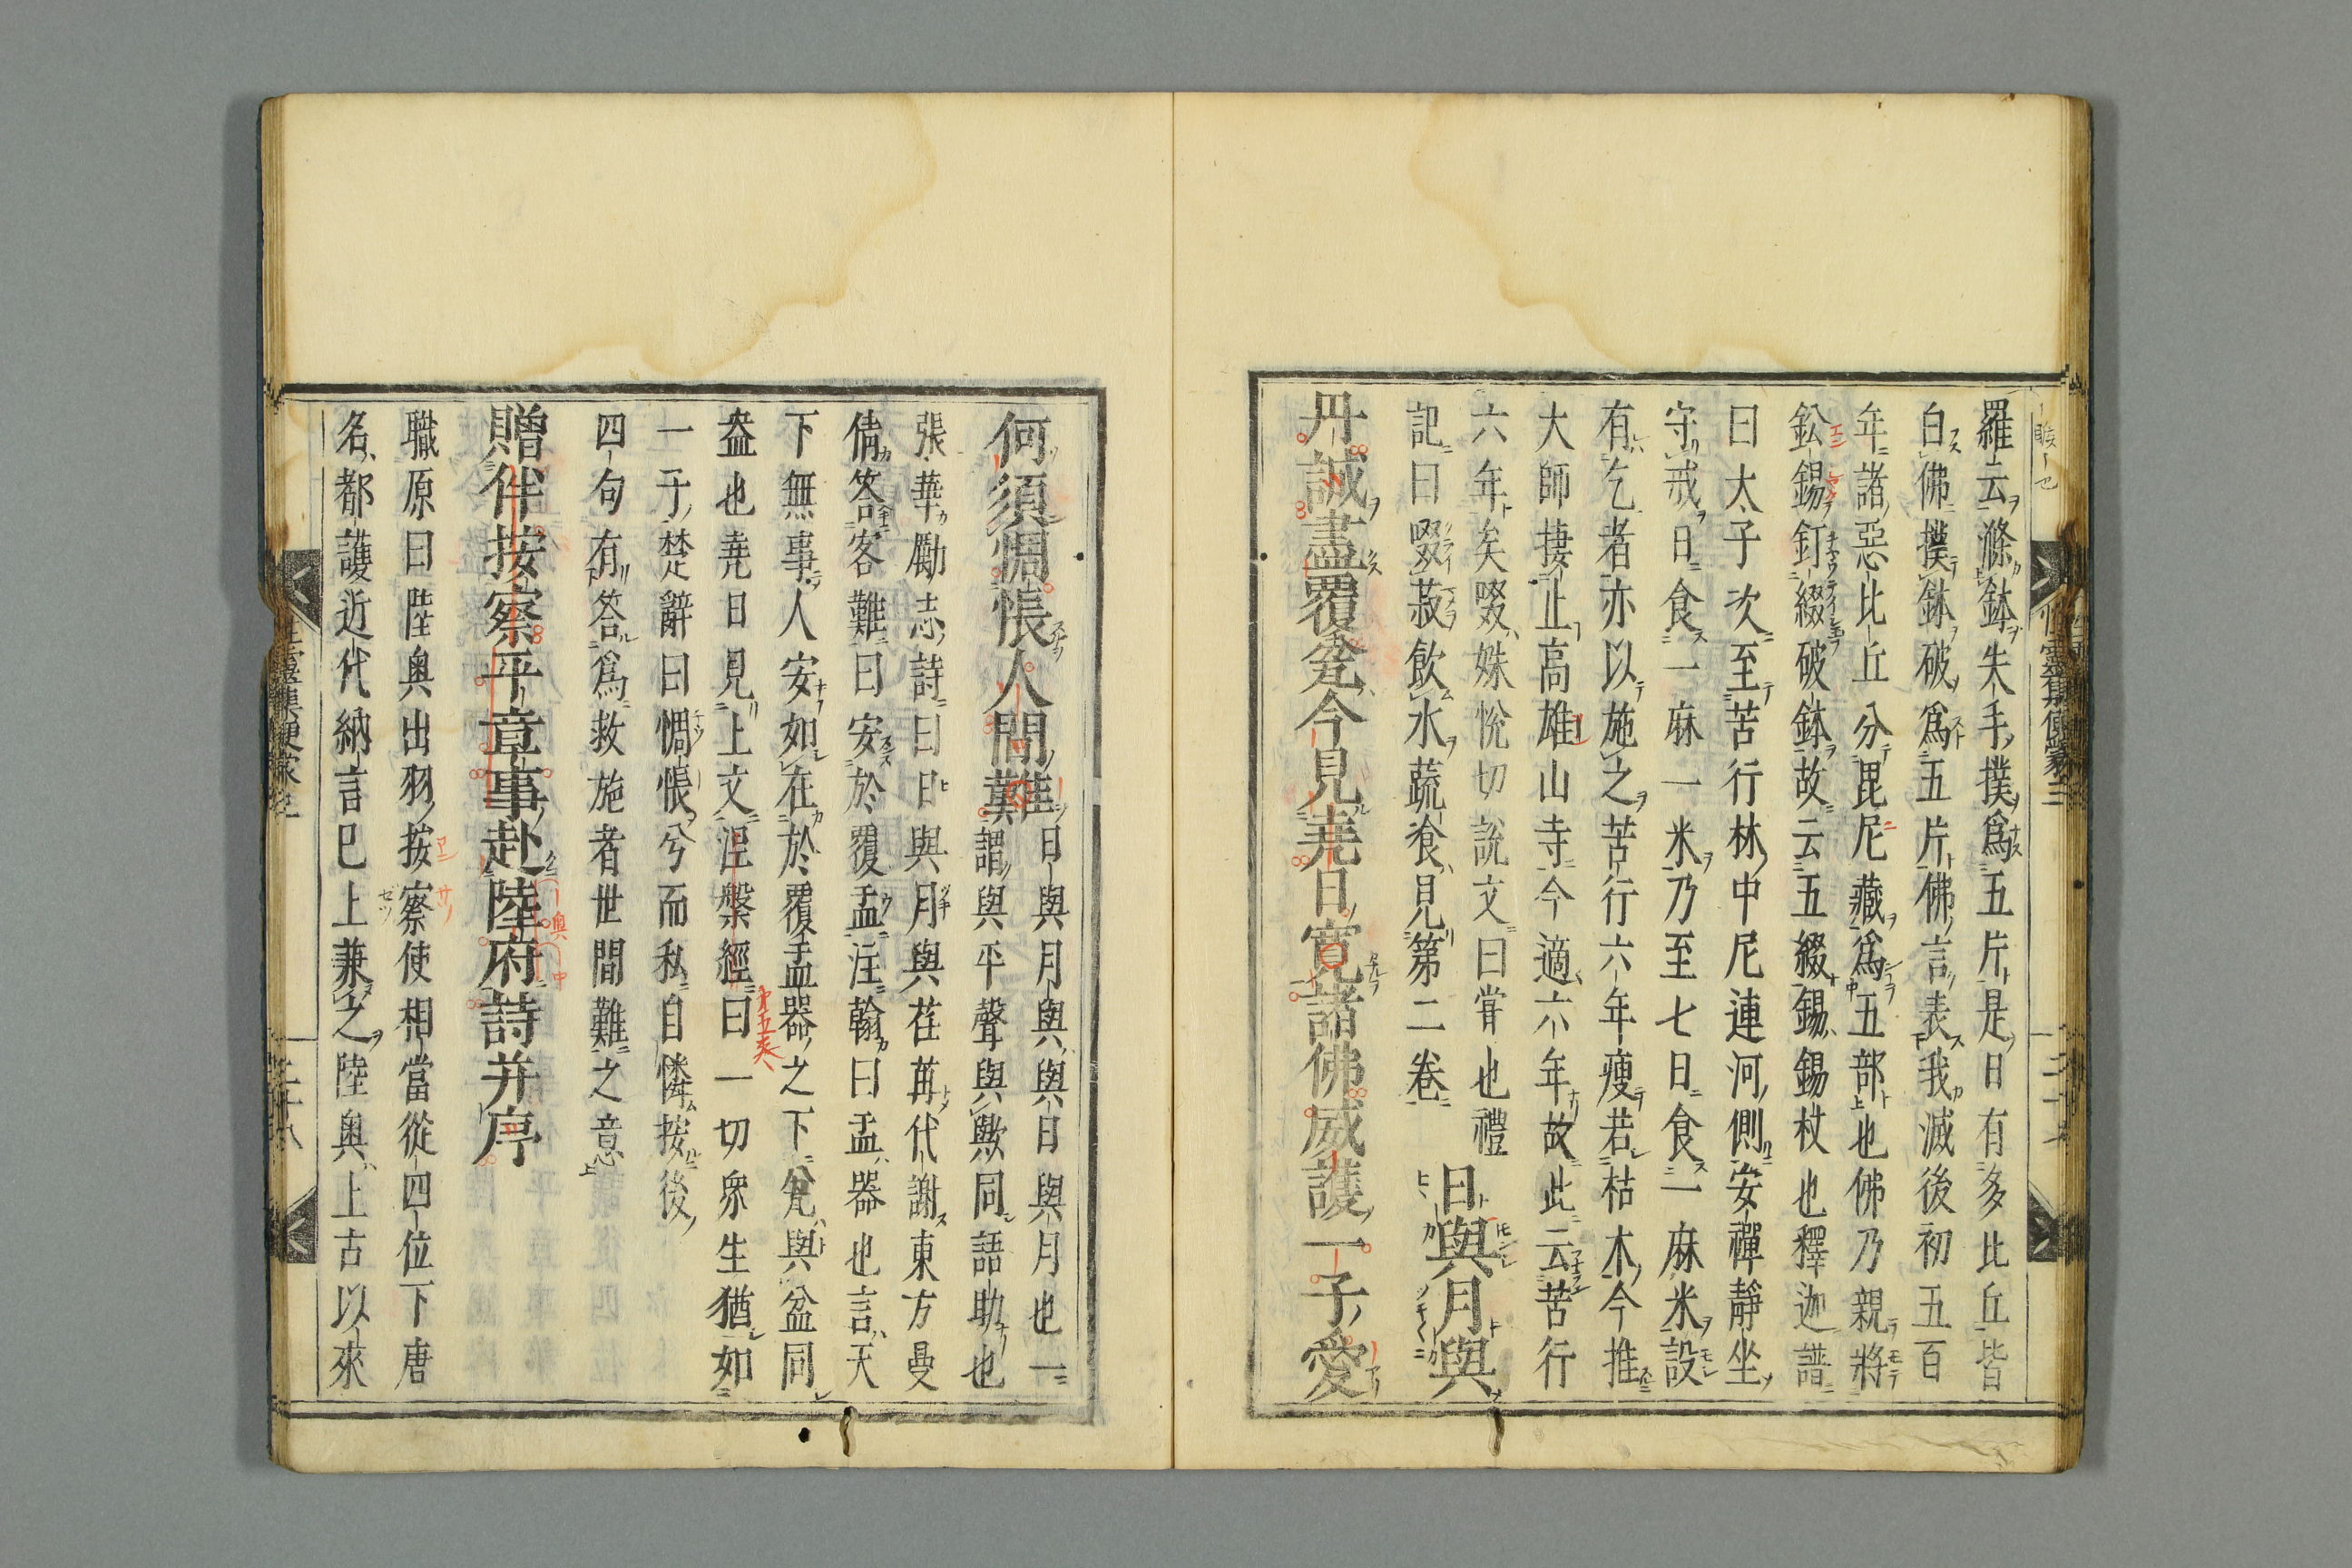 羅云滌鉢失手撲爲五片是日有多比丘皆
白佛撲鉢破爲五片佛言表我滅後初五百
年諸惡比丘分毘尼藏爲五部也佛乃親將
鈆錫釘綴破鉢故云五綴錫錫杖也釋迦譜
曰太子次至苦行林中尼連河側安禪靜坐
守戒日食一麻一米乃至七日食一麻米設
有乞者亦以施之苦行六年瘦若枯木今推
大師捿止高雄山寺今適六年故此云苦行
六年矣啜姝悅切說文曰嘗也禮
記曰啜菽飮水蔬飡見第二卷
日與月與
丹誠盡覆瓫今見堯日寛諸佛威護一子愛
何須惆悵人間難
日與月與與日與月也一
謂與平聲與歟同語助也
張華勵志詩曰日與月與荏苒代謝東方曼
倩答客難曰安於覆盂注翰曰盂器也言天
下無事人安如在於覆盂器之下瓫與盆同
盎也堯日見上文涅槃經曰一切衆生猶如
一子楚辭曰惆悵兮而私自憐按後
四句有答爲救施者世間難之意
贈伴按察平章事赴陸府詩并序
職原曰陸奥出羽按察使相當從四位下唐
名都護近代納言已上兼之陸奥上古以來